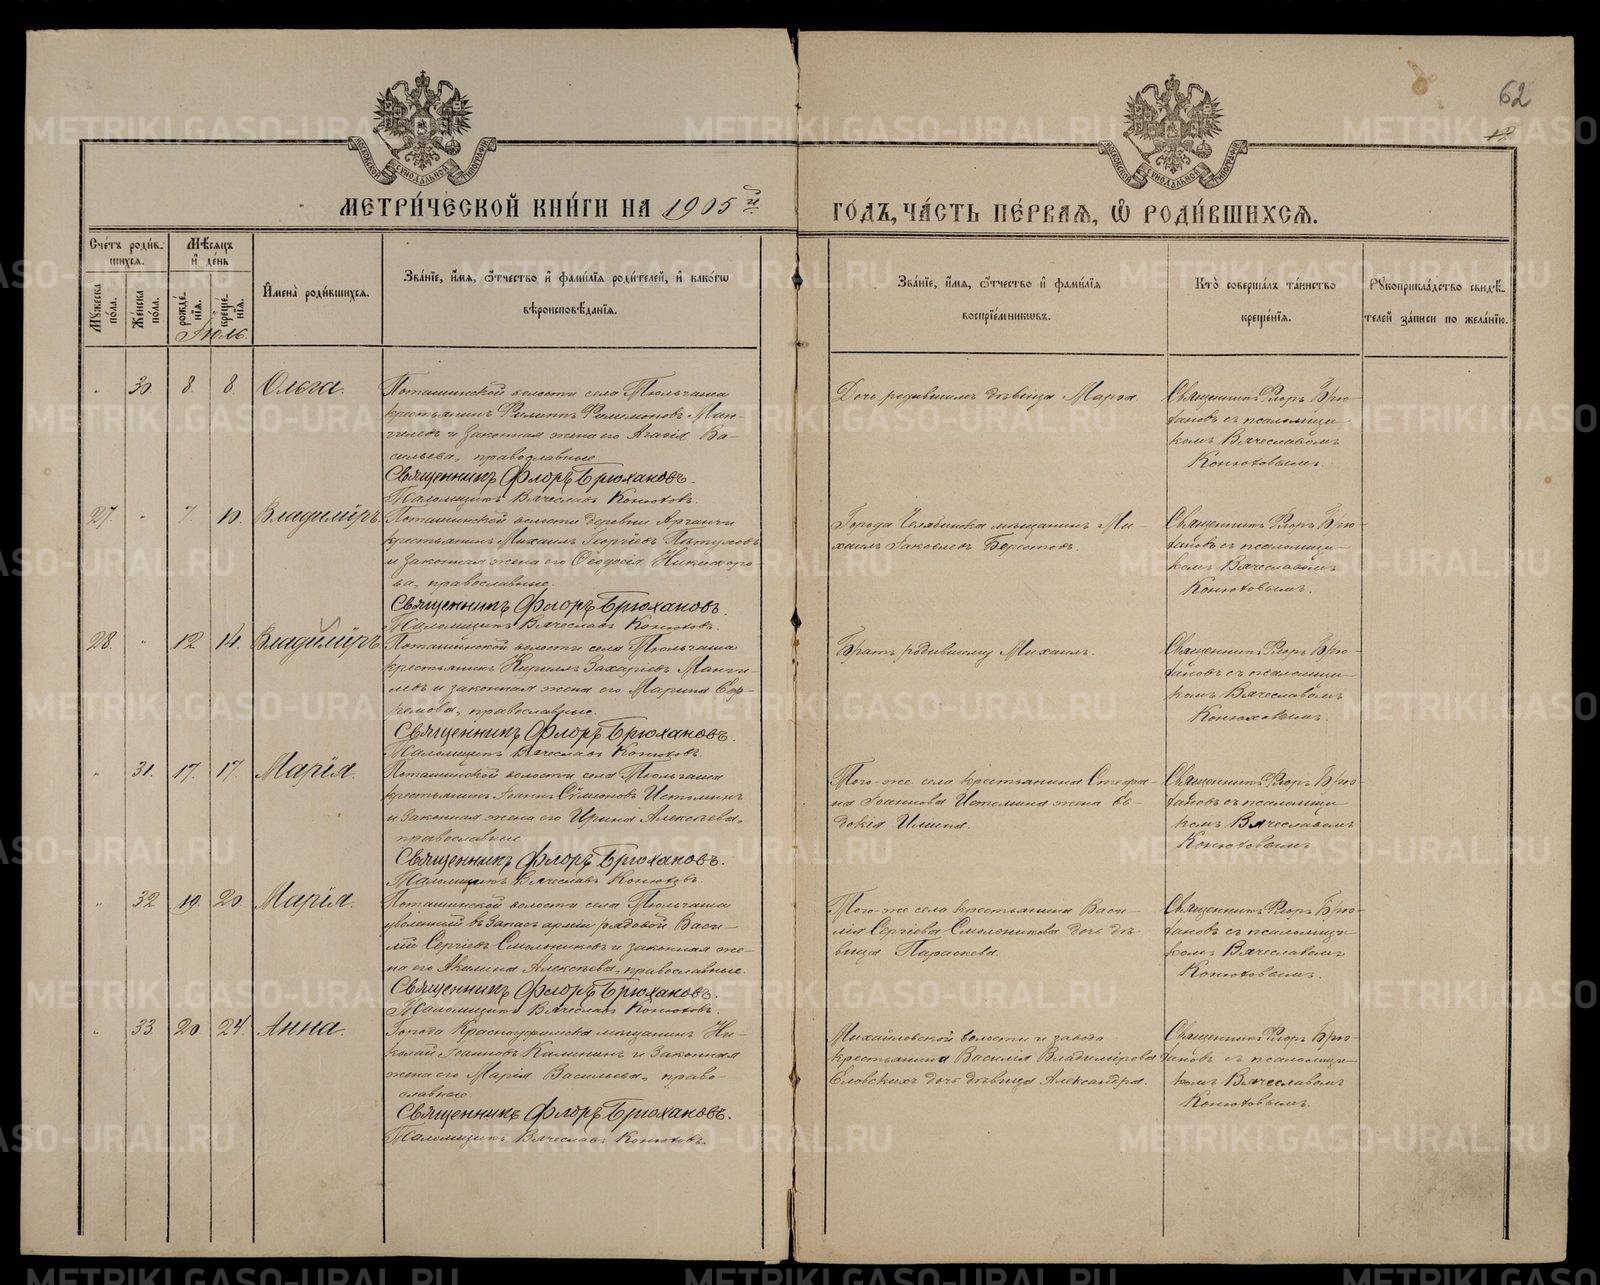 62
18
МОСКОВСКОЙ СУНОДАЛЬНОЙ ТИПОГРАФИИ
МОСКОВСКОЙ СУНОДАЛЬНОЙ ТИПОГРАФИИ
МЕТРИ́ЧЕСКОЙ КНИ́ГИ НА 1905й
ГО́ДЪ, ЧА́СТЬ ПЕ́РВАѦ, Ѡ҆ РОДИ́ВШИХСѦ.
Сче́тъ роди́в-
шихся.
Мѣ́сяцъ
и҆ де́нь
Му́жеска по́ла.
Же́нска по́ла.
рожде́нїя.
креще́нїя.
И҆мена̀ роди́вшихся.
Зва́нїе, и҆́мя, ѻ҆́тчество и҆ фами́лїя роди́телей, и҆ како́гѡ
вѣроисповѣ́данїя.
Зва́нїе, и҆́мя, ѻ҆́тчество и҆ фами́лїя
воспрїе́мникѡвъ.
Кто̀ соверша́лъ та́инство
креще́нїя.
Рꙋкоприкла́дство свидѣ́-
телей за́писи по жела́нїю.
Іюль.
" 30. 8. 8. Ольга.
Поташинской волости села Тюльгаша
крестьянинъ Филиппъ Филимоновъ Ман-
гилевъ и законная жена его Агафія Ва-
сильева, православные
Священникъ Флоръ Брюхановъ.
Псаломщикъ Вячеславъ Конюховъ.
Дочь родившихъ дѣвица Марѳа.
Священникъ Флоръ Брю-
хановъ съ псаломщи-
комъ Вячеславомъ
Конюховымъ
27. " 7. 10. Владиміръ.
Поташинской волости деревни Артанчи
крестьянинъ Михаилъ Георгіевъ Пѣтуховъ
и законная жена его Ѳеодосія Никифоро-
ва, православные.
Священникъ Флоръ Брюхановъ.
Псаломщикъ Вячеславъ Конюховъ.
Города Челябинска мѣщанинъ Ми-
хаилъ Іаковлевъ Берестовъ.
Священникъ Флоръ Брю-
хановъ съ псаломщи-
комъ Вячеславомъ
Конюховымъ.
28. " 12 14. Владиміръ.
Поташинской волости села Тюльгаша
крестьянинъ Кириллъ Захаріевъ Манги-
левъ и законная жена его Марина Еф-
ремова, православные.
Священникъ Флоръ Брюхановъ.
Псаломщикъ Вячеславъ Конюховъ.
Братъ родившему Михаилъ.
Священникъ Флоръ Брю-
хановъ съ псаломщи-
комъ Вячеславомъ
Конюховымъ.
" 31. 17. 17. Марія.
Поташинской волости села Тюльгаша
крестьянинъ Іоаннъ Сумеоновъ Истоминъ
и законная жена его Ирина Алексѣева,
православные
Священникъ Флоръ Брюхановъ.
Псаломщикъ Вячеславъ Конюховъ.
Того-же села крестьянина Стефа-
на Іоаннова Истомина жена Ев-
докія Ильина.
Священникъ Флоръ Брю-
хановъ съ псаломщи-
комъ Вячеславомъ
Конюховымъ
" 32 19. 20 Марія.
Поташинской волости села Тюльгаша
уволенный въ запасъ арміи рядовой Васи-
лій Сергіевъ Смольниковъ и законная же-
на его Акилина Алексѣева, православные.
Священникъ Флоръ Брюхановъ.
Псаломщикъ Вячеславъ Конюховъ.
Того-же села крестьянина Васи-
лія Сергіева Смольникова дочь дѣ-
вица Параскева.
Священникъ Флоръ Брю-
хановъ съ псаломщи-
комъ Вячеславомъ
Конюховымъ.
" 33 20 24 Анна.
Города Красноуфимска мѣщанинъ Ни-
колай Іоанновъ Калининъ и законная
жена его Марія Васильева, право-
славные
Священникъ Флоръ Брюхановъ.
Псаломщикъ Вячеславъ Конюховъ.
Михайловской волости и завода
крестьянина Василія Владимірова
Еловскихъ дочь дѣвица Александра.
Священникъ Флоръ Брю-
хановъ съ псаломщи-
комъ Вячеславомъ
Конюховымъ.
METRIKI.GASO-URAL.RU